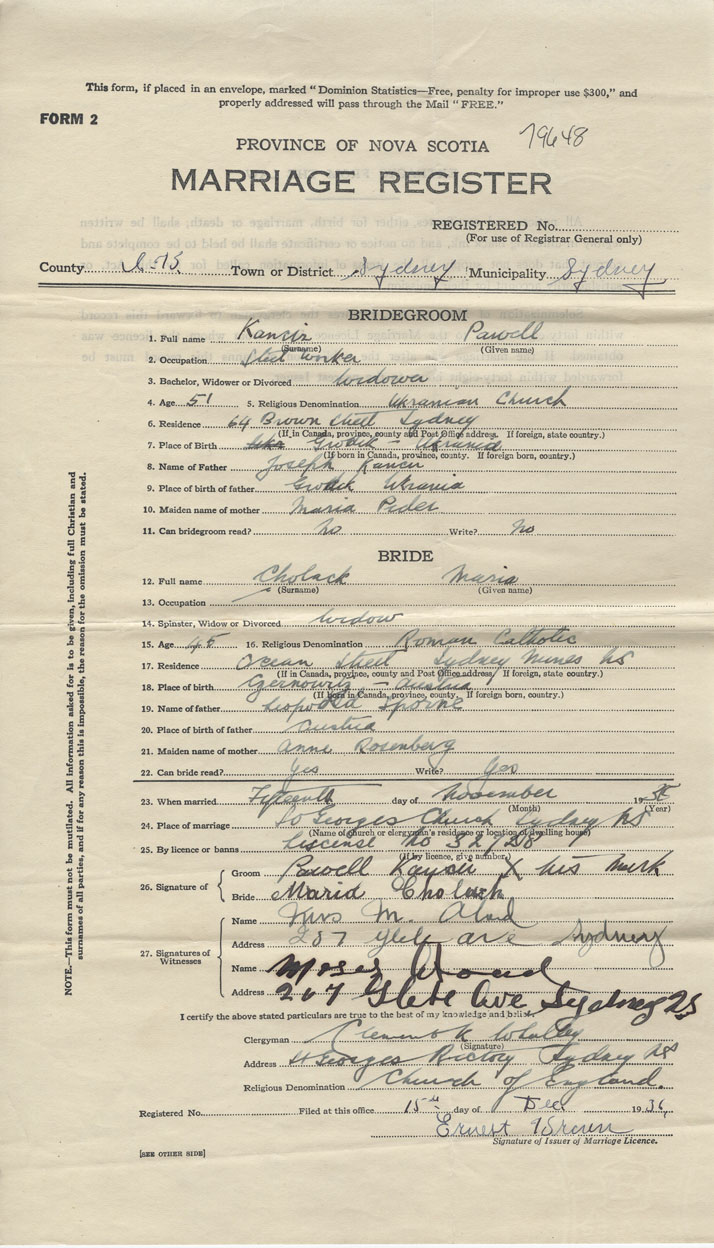 This form, if placed in an envelope, marked "Dominion Statistics—Free, penalty for improper use $300," and
properly addressed will pass through the Mail "FREE."
FORM 2
79648
PROVINCE OF NOVA SCOTIA
MARRIAGE REGISTER
REGISTERED No.
(For use of Registrar General only)
County C.B. Town or District Sydney Municipality Sydney
BRIDEGROOM
1. Full name Kancir Pawell
(Surname) (Given name)
2. Occupation Steel worker
3. Bachelor, Widower or Divorced Widower
4. Age 51 5. Religious Denomination Ukranian Church
6. Residence 64 Brown Street Sydney
(If in Canada, province, county and Post Office address. If foreign, state country.)
7. Place of Birth Grodek - Ukrania
(If born in Canada, province, county. If foreign born, country.)
8. Name of Father Joseph Kancir
9. Place of birth of father Grodek Ukrania
10. Maiden name of mother Maria Peder
11. Can bridegroom read? no Write? no
BRIDE
12. Full name Cholack Maria
(Surname) (Given name)
13. Occupation
14. Spinster, Widow or Divorced Widow
15. Age 45 16. Religious Denomination Roman Catholic
17. Residence Ocean Street Sydney Mines NS
(If in Canada, province, county and Post Office address. If foreign, state country.)
18. Place of birth Czernowitz - Austria
(If born in Canada, province, county. If foreign born, country.)
19. Name of father Leopold
20. Place of birth of father Austria
21. Maiden name of mother Anna Rosenberg
22. Can bride read? Yes Write? Yes
23. When married Fifteenth day of November 19
(Month) (Year)
24. Place of marriage St Georges Church Sydney NS
(Name of church or clergyman's residence or location of dwelling house)
25. By licence or banns Liscense No
(If by licence, give number)
26. Signature of Groom Pawell Kancir X his mark
Bride Maria Cholack
27. Signatures of Witnesses
Name Mrs M.
Address 207 Glebe ave Sydney
Name Moses
Address 207 Glebe Ave Sydney NS
I certify the above stated particulars are true to the best of my knowledge and belief.
Clergyman
(Signature)
Address St Georges Rectory Sydney NS
Religious Denomination Church of England.
Registered No. Filed at this office 15th day of Dec 1936
Ernest Brown
Signature of Issuer of Marriage Licence.
[SEE OTHER SIDE]
NOTE.—This form must not be mutilated. All information asked for is to be given, including full Christian and
surnames of all parties, and if for any reason this is impossible, the reason for the omission must be stated.